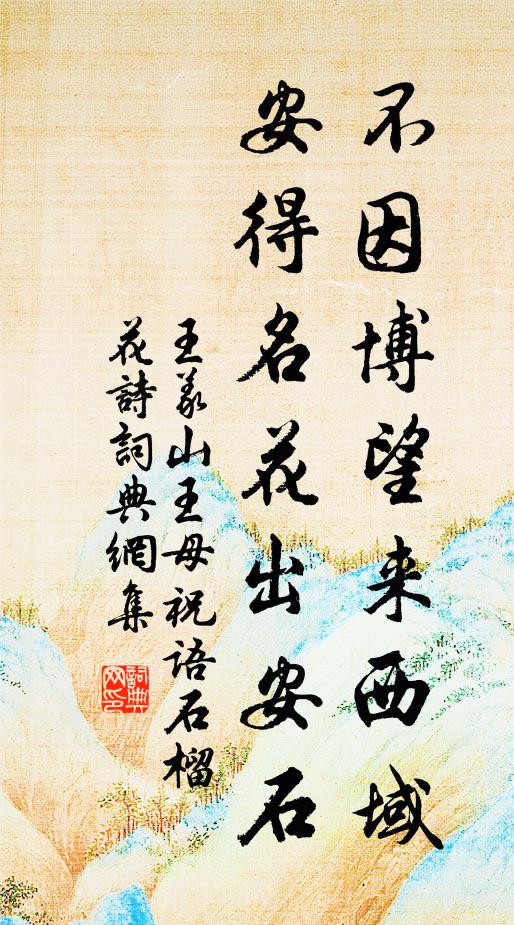 不因博望来西域
安得名花出安石
王义山王母祝语石榴
花詩詞典網集
詞典網印